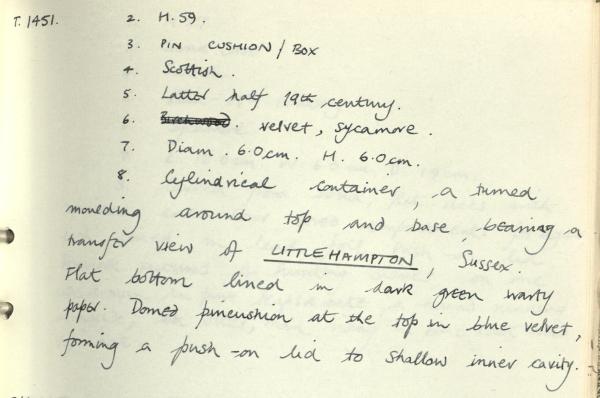 T.1451. 2. H.59.
3. PIN CUSHION / BOX
4. Scottish.
5. Latter half 19th century.
6. Birchwood. velvet, sycamore.
7. Diam. 6.0cm. H. 6.0cm.
8. Cylindrical container, a turned
moulding around top and base, bearing a
transfer view of LITTLEHAMPTON, Sussex.
Flat bottom lined in dark green warty
paper. Domed pincushion at the top in blue velvet,
forming a push-on lid to shallow inner cavity.